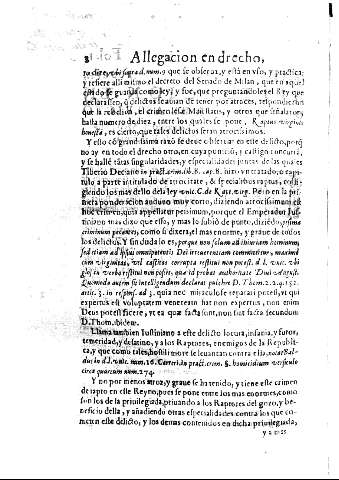 8 Allegacion en drecho,
d. num. 9 que se obserua, y està en vso, y practica;
y refiere assi mismo el decreto del Senado de Milan, que en aquel
estado se guarda como ley; y fue, que preguntandoles el Rey que
declarassen, q̃ delictos se auian de tener por atroces, respondieron
que la rebelion, el crimen lesæ Maiestatis, y otros que señalaron,
hasta numero de diez, entre los quales se pone, Raptus virginis
honestæ, es cierto, que tales delictos seran atrocissimos.
Y esso cõ grandissima razõ se deue obseruar en este delicto, porq̃
no ay en todo el drecho otro, en cuya punicion, y castigo concurrã,
y se hallẽ tãtas singularidades, y especialidades juntas de las quales
Tiberio Deciano in pract. crim. lib. 8. cap. 8. hizo vn tratado, o capi-
tulo a parte intitulado de atrocitate, & specialibus raptus, coli-
giendo los mas dello dela ley vnic. C. de Rapt. virg. Pero en la pri-
mera ponderacion anduuo muy corto, diziendo atrocissimum est
hoc crimen, quia appellatur pessimum, porque el Emperador Jus-
tiniano mas dixo que esso, y mas lo subiò de punto, diziendo,
criminum peiores, como si dixera, el mas enorme, y graue de todos
los delictos. Y sin duda lo es, porque non solum ad iniuriam hominum,
sed etiam ad ipsius omnipotentis Dei irreuerentiam committitur, maximè
cum virginitas, vel castitas corrupta restitui non potest. d. l. vnic. vbi
glos. in verbo restitui non possit, que id probat authoritate Diui August.
Quomodo autem sit intelligendum declarat pulchrè D. Thom. 2. 2. q. 152.
artic. 3. in respons. ad 3. quia nec miraculose reparari potest, vt qui
expertus est voluptatem veneream fiat non expertus, non enim
Deus potest facere, vt ea quæ facta sunt, non sint facta secundum
D. Thom. ibidem.
Llama tambien Iustiniano a este delicto locura, insania, y furor,
temeridad, y desatino, a los Raptores, enemigos de la Republi-
ca, y que como tales, hostili more se leuantan contra ella,
in d. l. vnic. num. 16. in pract. crim. §. homicidium versiculo
circa quartum num. 274.
Y no por menos atroz, y graue se ha tenido, y tiene este crimen
de rapto en este Reyno, pues se pone entre los mas enormes, como
son los de la priuilegiada, priuando a los Raptores del gozo, y be-
neficio della, y añadiendo otras especialidades contra los que co-
meten este delicto, y los demas contenidos en dicha priuilegiada,